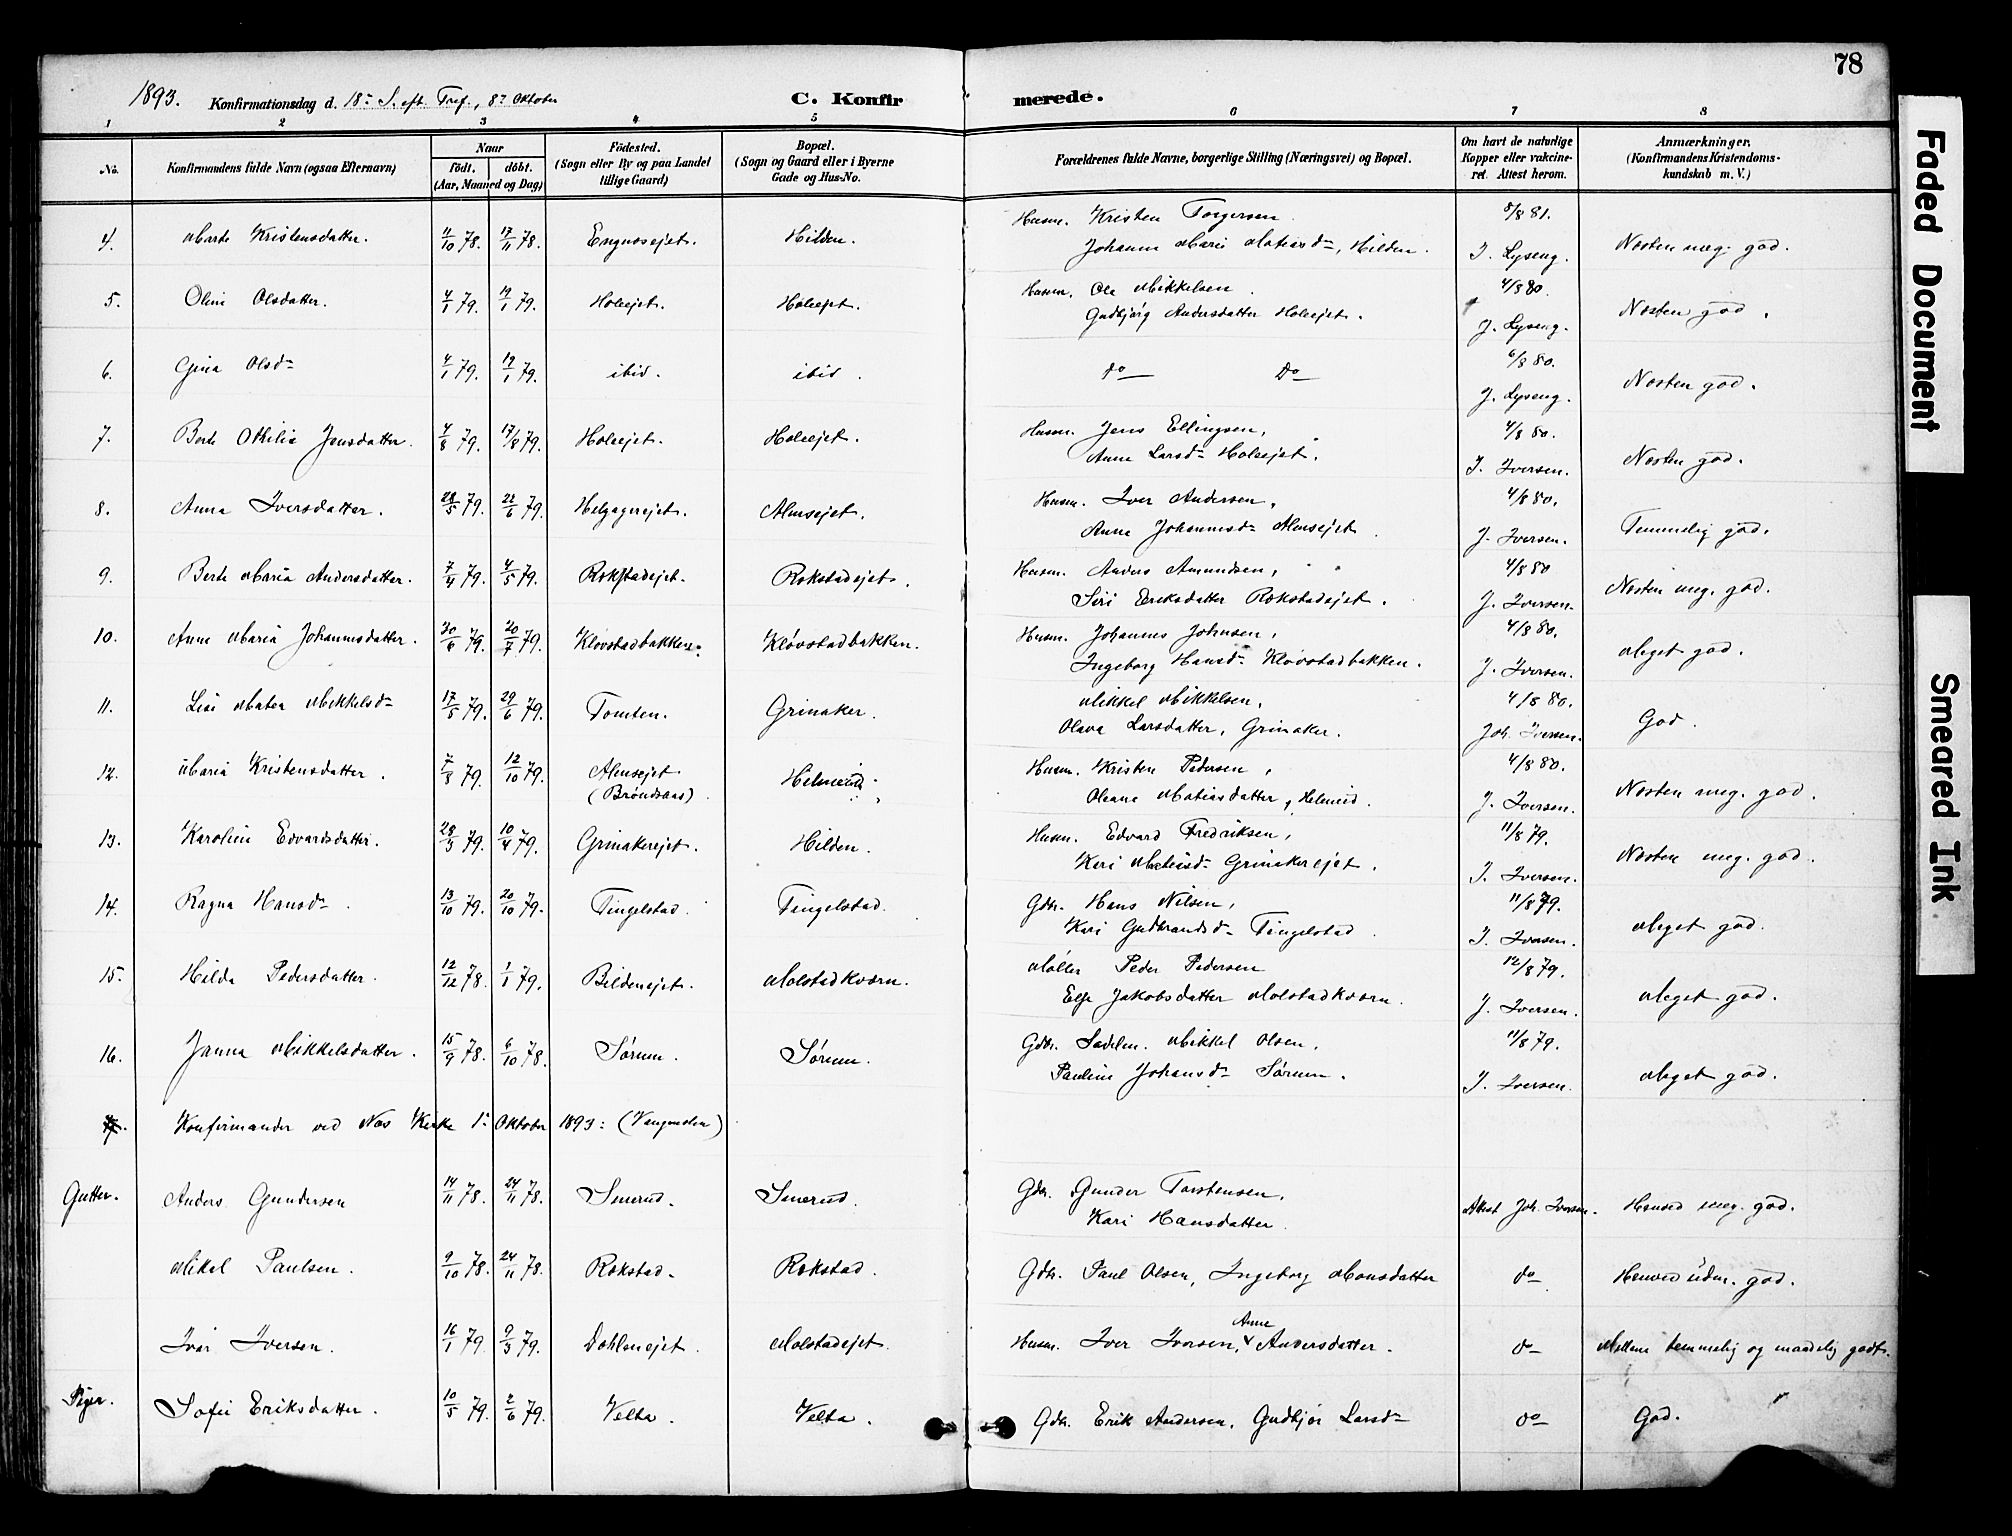 78
1893. Konfirmationsdag d. 18- S. eft. Tref., 8- Oktober C. Konfirmerede.
1 2 3 4 5 6 7 8
No. Konfirmandens fulde Navn (ogsaa Efternavn) Naar født, døbt. (Aar, Maaned og Dag) Fødested. (Sogn eller By og paa Landet tillige Gaard) Bopæl. (Sogn og Gaard eller i Byerne Gade og Hus-No. Forældrenes fulde Navne, borgerlige Stilling (Næringsvei) og Bopæl. Om havt de naturlige Kopper eller vakcineret. Attest herom. Anmærkninger. (Konfirmandens Kristendomskundskab m. V.)
4. Marte Kristensdatter. 11/10 78. 17/11 78. Engnæsejet. Hilden. Husm. Kristen Torgersen 8/8 81.
Johanne Marie Matiasd-, Hilden. J. Lyseng. Næsten meg. god.
5. Oline Olsdatter. 4/1 79. 19/1 79. Holeejet. Holeejet. Husm. Ole Mikkelsen 4/8 80.
Gudbjørg Andersdatter Holeejet. J. Lyseng. Næsten god.
6. Gina Olsd- 4/1 79. 19/1 79. ibid. ibid. do do 6/8 80.
J. Lyseng. Næsten god.
7. Berte Othilie Jensdatter. 4/8 79. 17/8 79. Holeejet. Holeejet. Husm. Jens Ellingsen, 4/8 80.
Anne Larsd- Holeejet. J. Iversen. Næsten god.
8. Anna Iversdatter. 28/5 79. 22/6 79. Helgagerejet. Almsejet. Husm. Iver Andersen, 4/8 80.
Anne Johannesd- Almsejet. J. Iversen. Temmelig god.
9. Berte Maria Andersdatter. 7/4 79. 4/5 79. Rokstadejet. Rokstadejet. Husm. Anders Amundsen, 4/8 80
Siri Eriksdatter Rokstadejet. J. Iversen. Næsten meg. god.
10. Anne Maria Johannesdatter. 20/6 79. 20/7 79. Kløvstadbakken. Kløvstadbakken. Husm. Johannes Johnsen, 4/8 80.
Ingeborg Hansd- Kløvstadbakken. J. Iversen. Meget god.
11. Lisi Matea Mikkelsd- 17/5 79. 29/6 79. Tomten. Grinaker. Mikkel Mikkelsen, 4/8 80.
Olava Larsdatter, Grinaker. Joh. Iversen. God.
12. Maria Kristensdatter. 7/8 79. 12/10 79. Almsejet. (Brøndsaas) Helmeid. Husm. Kristen Pedersen, 4/8 80.
Oleane Matiasdatter, Helmeid. J. Iversen. Næsten meg. god.
13. Karoline Edvardsdatter. 28/3 79. 10/4 79. Grinakerejet. Hilden. Husm. Edvard Fredriksen, 11/8 79.
Kari Matiasd- Grinakerejet. J. Iversen. Næsten meg. god.
14. Ragna Hansd- 13/10 79. 20/10 79. Tingelstad. Tingelstad. Gdbr. Hans Nilsen, 11/8 79.
Kari Gudbrandsd- Tingelstad. J. Iversen. Meget god.
15. Hilda Pedersdatter. 12/12 78. 1/1 79. Bildenejet. Molstadkværn. Møller Peder Pedersen 12/8 79.
Else Jakobsdatter Molstadkværn. J. Iversen. Meget god.
16. Janna Mikkelsdatter. 15/9 78. 6/10 78. Sørum. Sørum. Gdbr. Sadelm. Mikkel Olsen, 11/8 79.
Pauline Johansd- Sørum. J. Iversen. Meget god.
Konfirmander ved Næs Kirke 1- Oktober 1893:
Gutter. Anders Gundersen 14/11 78. 24/11 78. Smerud. Smerud. Gdbr. Gunder Torstensen,
Kari Hansdatter. Attest Joh. Iversen. Henved meg. god.
Mikel Paulsen. 9/10 78. 24/11 78. Rokstad. Rokstad. Gdbr. Paul Olsen, Ingeborg Monsdatter do Henved udm. god.
Ivar Iversen. 16/1 79. 9/3 79. Dahlenejet. Molstadejet. Husm. Iver Iversen, Anne Andersdatter. do Mellem temmelig og maadelig godt.
Piger. Sofie Eriksdatter. 10/5 79. 2/6 79. Velta. Velta. Gdbr. Erik Andersen, Gudbjør Larsd- do God.
Faded Document
Smeared Ink